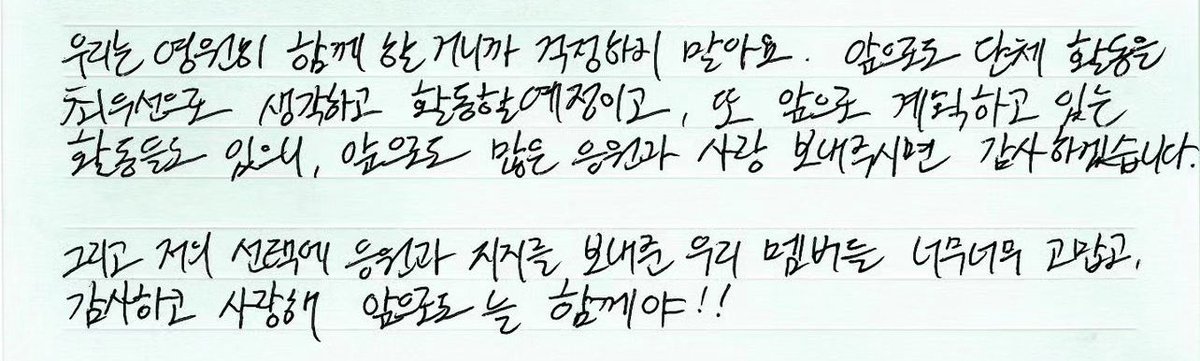 우리는 영원히 함께 할 거니까 걱정하지 말아요. 앞으로도 단체 활동을
최우선으로 생각하고 활동할 예정이고, 또 앞으로 계획하고 있는
활동들도 있으니, 앞으로도 많은 응원과 사랑 보내주시면 감사하겠습니다.
그리고 저의 선택에 응원과 지지를 보내준 우리 멤버들 너무너무 고맙고,
감사하고 사랑해 앞으로도 늘 함께야!!